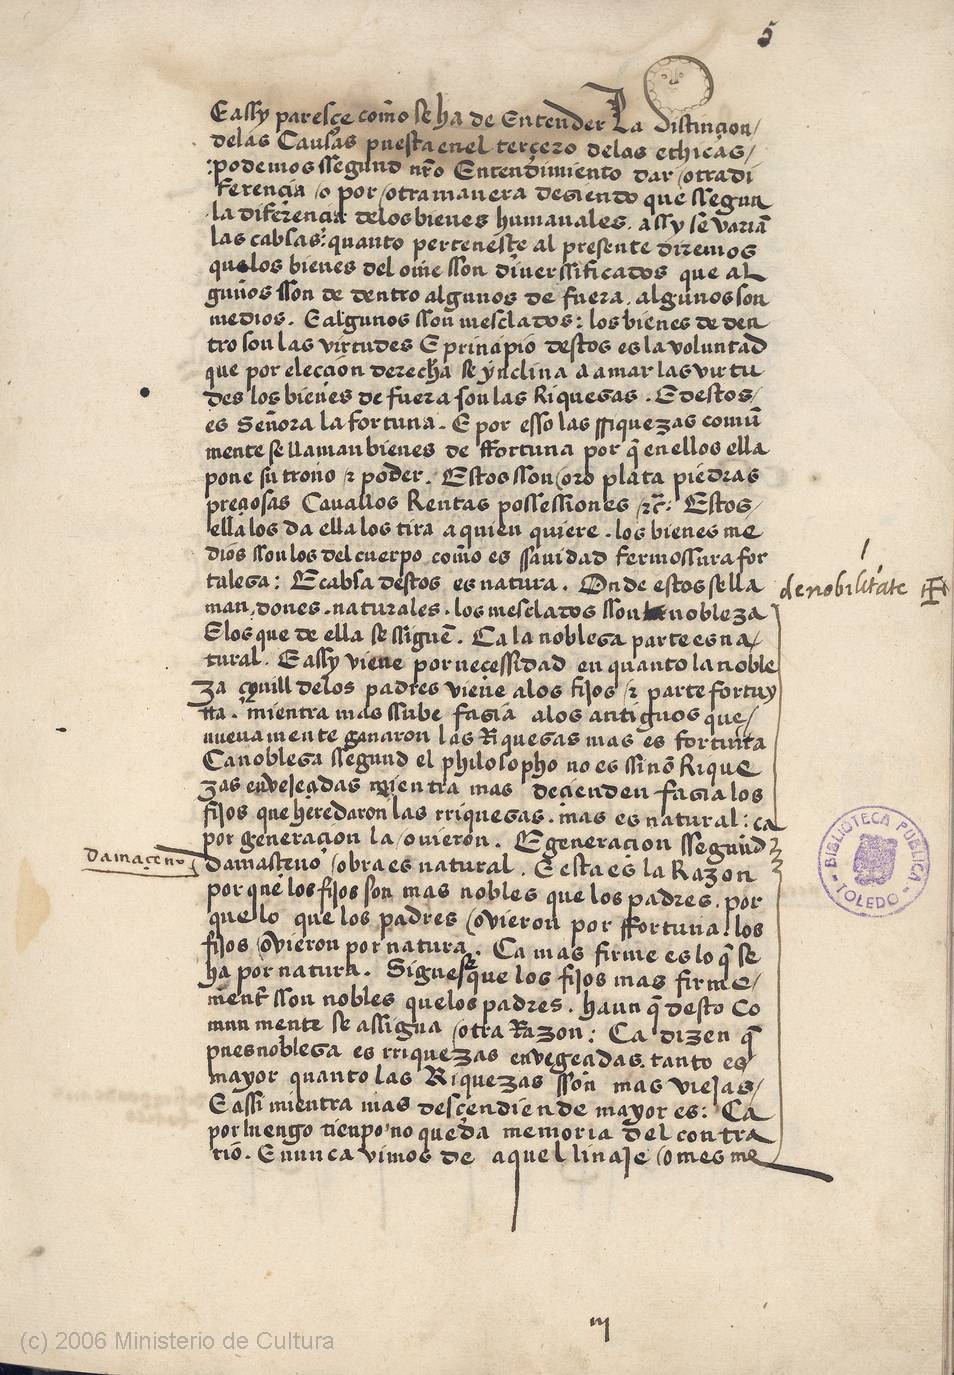 5
E assy paresçe cõmo se ha de Entender La distinçion/
delas Causas puesta enel terçero delas ethicas/
podemos ssegund nr̃o Entendimiento dar otra di
ferençia o por otra manera desiendo que ssegun
la diferençia delos bienes humanales. assy se varian
las cabsas: quanto pertenesçe al presente diremos
quelos bienes del om̃e sson diuerssificados que al
gunos sson de dentro algunos de fuera. algunos son
medios. E algunos sson mesclados: los bienes de den
tro son las virtudes E prinçipio destos es la voluntad
que por elecçion derecha se ynclina a amar las virtu
des los bienes de fuera son las Riquesas. E destos/
es Señora la fortuna. E por esso las rriquezas comũ
mente se llaman bienes de ffortuna por q̃ en ellos ella
pone su trono ⁊ poder. Estos sson oro plata piedras
preçiosas Cauallos Rentas possessiones ⁊c̃: Estos/
ella los da ella los tira a quien quiere. los bienes me
dios sson los del cuerpo cõmo es sanidad fermossura for
talesa: E cabsa destos es natura. Onde estos se lla
man dones naturales. los mesclados sson nobleza
E los que de ella se ssiguẽ. Ca la noblesa parte es na/
tural. E assy viene por neçessidad en quanto la noble
za çiuill delos padres viene alos fijos ⁊ parte fortuy
ta. mientra mas ssube fasia alos antiguos que/
nueuamente ganaron las Riquesas mas es fortuita
Ca noblesa ssegund el philosopho no es ssino Rique
zas enveleçidas mientra mas deçienden fasia los
fijos que heredaron las rriquesas. mas es natural: ca
por generaçion la ouieron. E generaçion ssegund
damasçeno obra es natural. E esta es la Razon
por que los fijos son mas nobles que los padres. por
que lo que los padres ouieron por ffortuna. los
fijos ouieron por natura. Ca mas firme es lo q̃ se
ha por natura. Siguese que los fijos mas firme/
ment̃ sson nobles que los padres. haun q̃ desto Co
mun mente se assigna otra Razon: Ca dizen q̃
pues noblesa es rriquezas envegeçidas. tanto es
mayor quanto las Riquezas sson mas viejas/
E assi mientra mas descendiende mayor es: Ca
por luengo tienpo no queda memoria del contra
rio. E nunca vimos de aquel linaje omes me
de nobilitate
damaçeno
BIBLIOTECA PUBLICA
TOLEDO
iij
(c) 2006 Ministerio de Cultura